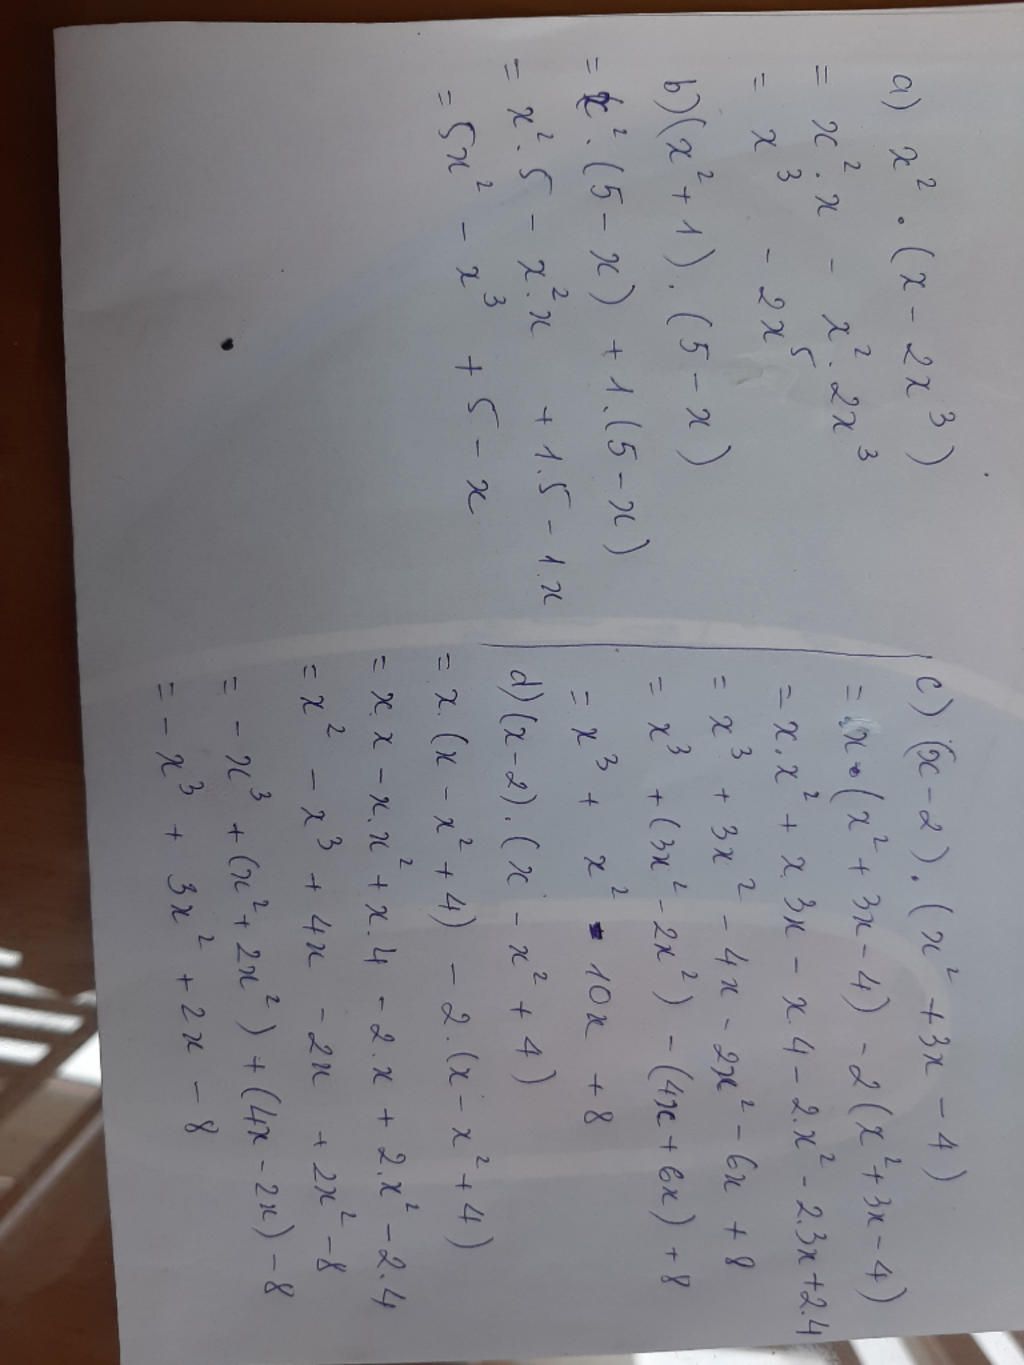 a) x² . (x - 2x³)
= x². x - x². 2x³
= x³ - 2x⁵
b) (x² + 1). (5 - x)
= x². (5 - x) + 1.(5 - x)
= x². 5 - x². x + 1.5 - 1.x
= 5x² - x³ + 5 - x
c) (x - 2). (x² + 3x - 4)
= x. (x² + 3x - 4) - 2(x² + 3x - 4)
= x. x² + x. 3x - x. 4 - 2. x² - 2.3x + 2.4
= x³ + 3x² - 4x - 2x² - 6x + 8
= x³ + (3x² - 2x²) - (4x + 6x) + 8
= x³ + x² - 10x + 8
d) (x - 2). (x - x² + 4)
= x. (x - x² + 4) - 2. (x - x² + 4)
= x. x - x. x² + x. 4 - 2. x + 2. x² - 2. 4
= x² - x³ + 4x - 2x + 2x² - 8
= - x³ + (x² + 2x²) + (4x - 2x) - 8
= - x³ + 3x² + 2x - 8